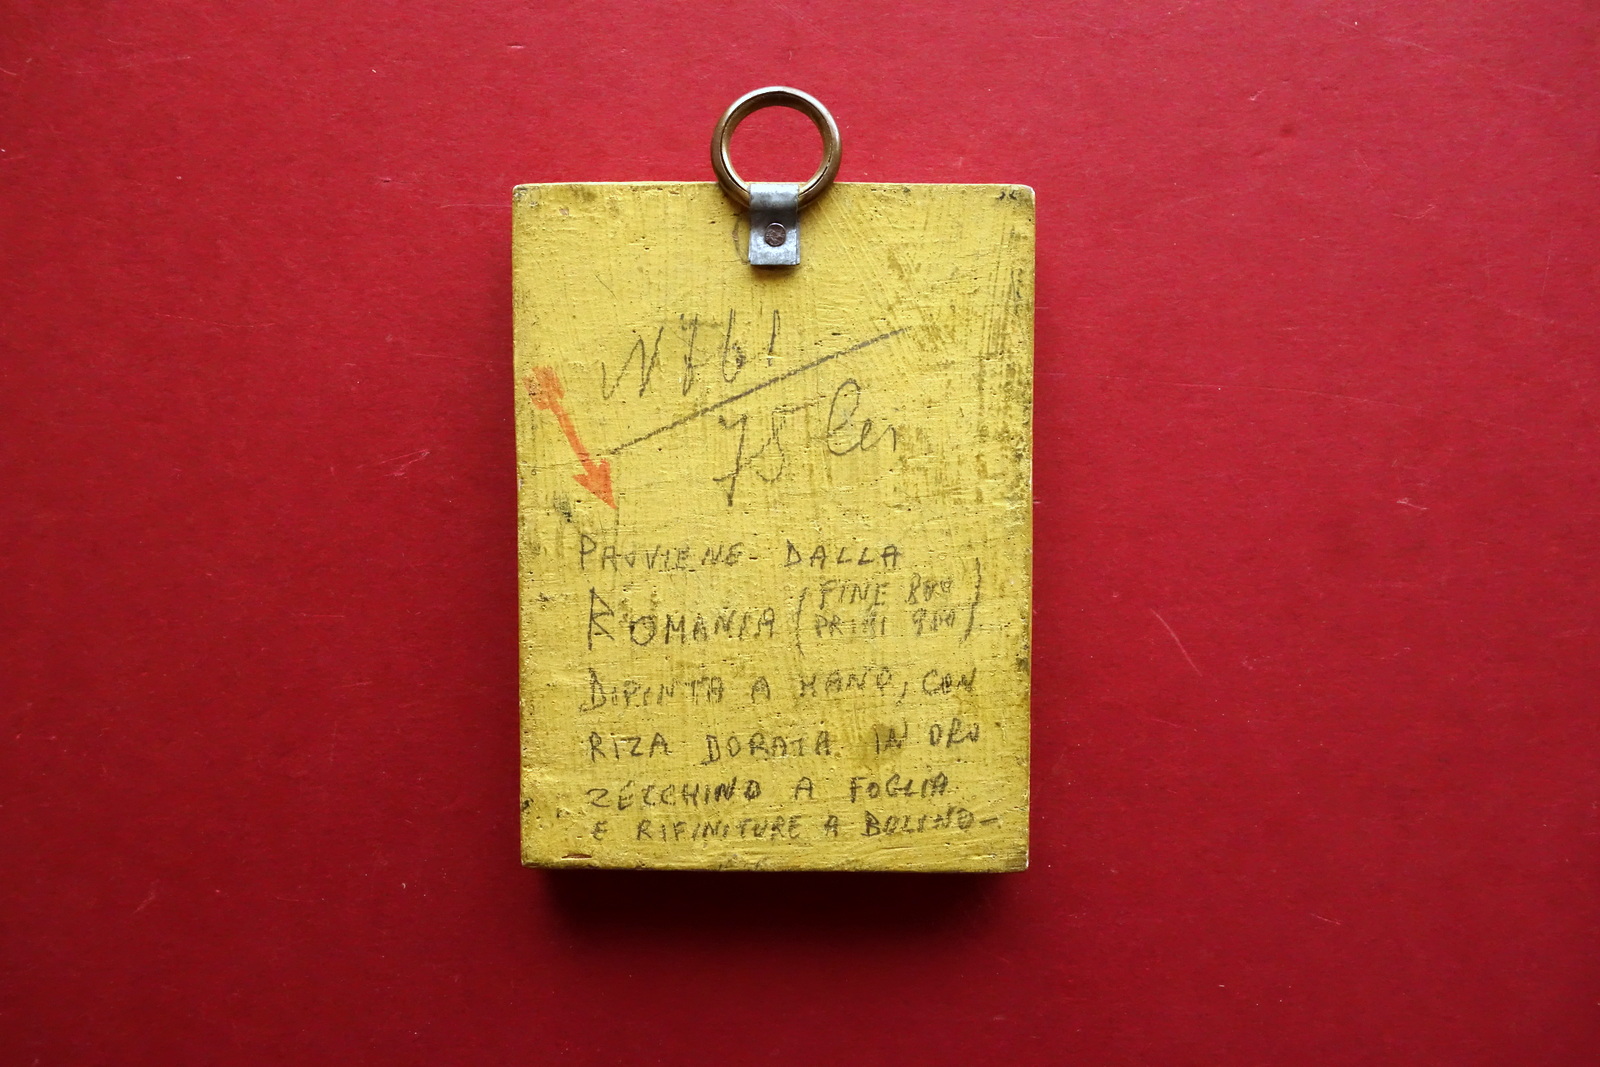 N 761
75 Cen
PROVIENE DALLA
ROMANIA (FINE 800
PRIMI 900)
DIPINTA A MANO, CON
RIZA DORATA IN ORO
ZECCHINO A FOGLIA
E RIFINITURE A BULINO-